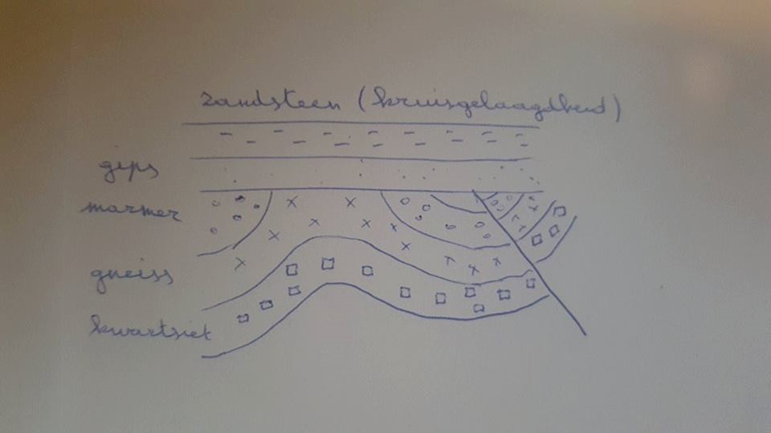 zandsteen (kruisgelaagdheid)
gips
marmer
gneiss
kwartsiet